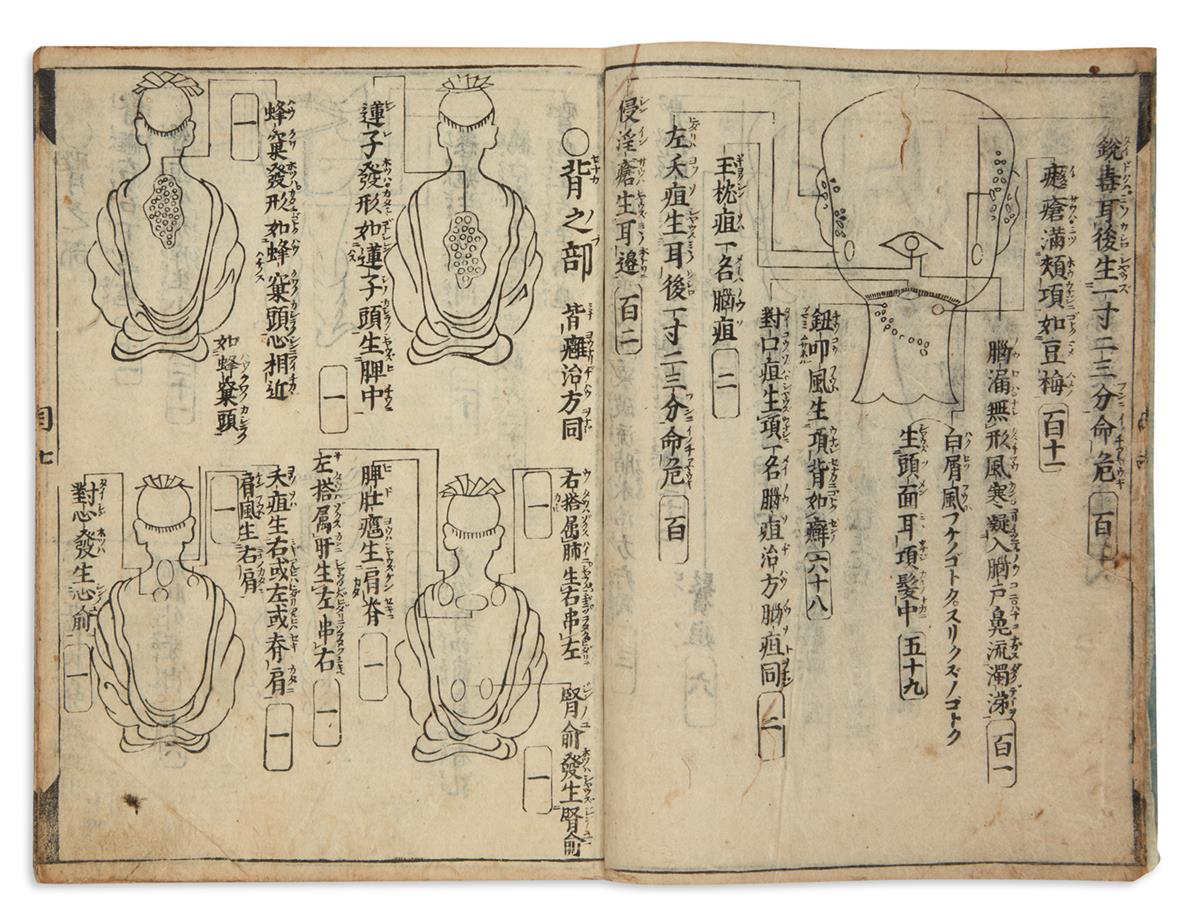 銳毒耳後生一寸二三分命危 百十八
癦瘡滿頰項如豆梅 百十一
腦漏無形風寒凝入腦戸鼻流濁涕 百一
白屑風フケノゴトクスリクズノゴトク
生頭面耳項髮中 五十九
鈕叩風生項背如癬 六十八
對口疽生項一名腦疽治方腦疽同 二
玉枕疽一名腦疽 二
左夭疽生耳後一寸二三分命危 百
侵淫瘡生耳邉 百二
○背之部 皆癰治方同
蓮子發形如蓮子頭生脾中 一
蜂窠發形如蜂窠頭心相近 一
如蜂窠頭
右搭属肺生右串左 一
腎俞發生腎俞 一
脾肚癰生肩脊 一
左搭属肝生左串右 一
夭疽生右或左或脊肩 一
肩風生右肩 一
對心發生心俞 一